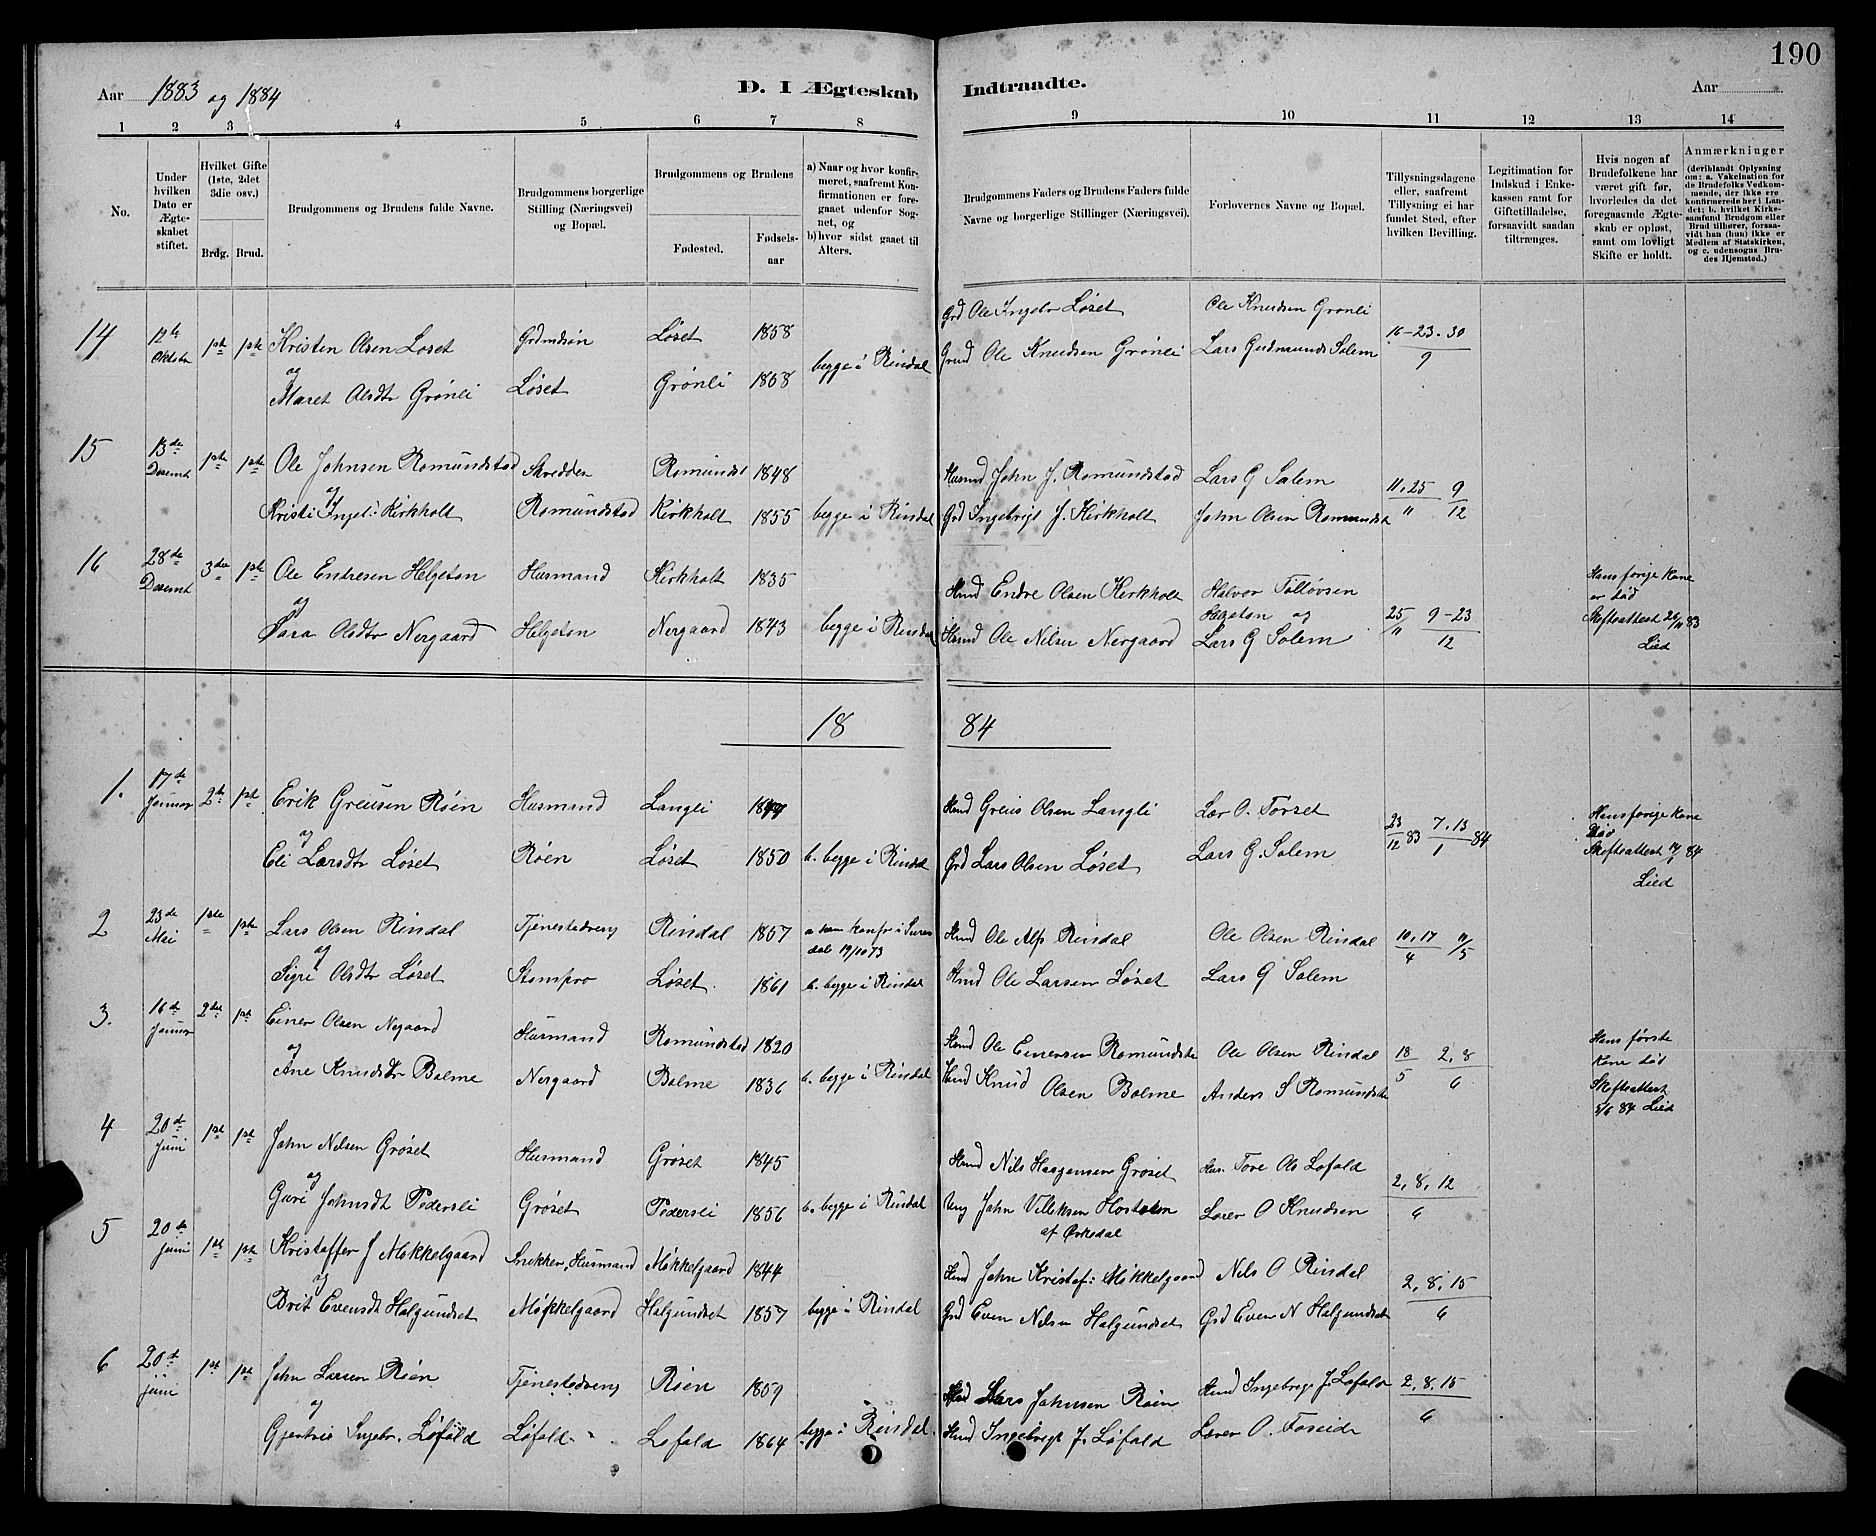 190
Aar 1883 og 1884 D. I Ægteskab Indtraadte. Aar
1 2 3 4 5 6 7 8 9 10 11 12 13 14
No.
Under hvilken Dato er Ægte-skabet stiftet.
Hvilket Gifte (1ste, 2det 3die osv.)
Brdg. Brud.
Brudgommens og Brudens fulde Navne.
Brudgommens borgerlige Stilling (Næringsvei) og Bopæl.
Brudgommens og Brudens
Fødested. Fødsels-aar
a) Naar og hvor konfir-meret, saafremt Kon-firmationen er fore-gaaet udenfor Sog-net, og
b) hvor sidst gaaet til Alters.
Brudgommens Faders og Brudens Faders fulde Navne og borgerlige Stillinger (Næringsvei).
Forlovernes Navne og Bopæl.
Tillysningsdagene eller, saafremt Tillysning ei har fundet Sted, efter hvilken Bevilling.
Legitimation for Indskud i Enke-kassen samt for Giftetilladelse, forsaavidt saadan tiltrænges.
Hvis nogen af Brudefolkene har været gift før, hvorledes da det foregaaende Ægte-skab er opløst, samt om lovligt Skifte er holdt.
Anmærkninger (deriblandt Oplysning om: a. Vakcination for de Brudefolks Vedkom-mende, der ikke ere konfirmerede her i Lan-det; b. hvilket Kirke-samfund Brudgom eller Brud tilhører, forsaa-vidt han (hun) ikke er Medlem af Statskirken, og c. udensogns Bru-des Hjemsted.)
14 12te Oktobr 1ste 1ste Kristen Olsen Løset Grdmdsøn Løset 1858 Grd Ole Ingebr Løset Ole Knudsen Grønli 16-23-30/9
og Maret Olsdtr Grønli Løset Grønli 1858 begge i Rindal Grmd Ole Knudsen Grønli Lars Gudmunds Solem
15 13de Decembr 1ste 1ste Ole Johnsen Romundstad Skredder Romundst 1848 Husmd John J. Romundstad Lars G Solem 11, 25/11 9/12
og Kristi Ingeb: Kirkholt Romundstad Kirkholt 1855 begge i Rindal Grd Ingebrigt J. Kirkholt John Olsen Romundst
16 28de Decembr 3die 1ste Ole Endresen Helgeton Husmand Kirkholt 1835 Hmd Endre Olsen Kirkholt Halvor Tølløvsen Helgeton og 25/11 9-23/12 Hans forige Kone er død
og Sara Olsdtr Nergaard Helgeton Nergaard 1843 begge i Rindal Husmd Ole Nilsen Nergaard Lars G Solem Skifteattest 26/11 83 Lied
1884
1. 17de Januar 2de 1ste Erik Greiisen Røen Husmand Langli Hmd Greiis Olsen Langli Lar O. Torset 23/12 83 7, 13/1 84 Hans forige Kone
og Eli Larsdtr Løset Røen Løset 1850 b. begge i Rindal Grd Lars Olsen Løset Lars G. Solem Skifteattest 84 Lied
2 23de Mai 1ste 1ste Lars Olsen Rindal Tjenestedreng Rindal 1857 a. han konfr i Suren dal 19/10 73 Hmd Ole Alfs Rindal Ole Olsen Rindal 10, 17/4 /5
og Sigri Olsdtr Løset Stompro Løset 1861 b. begge i Rindal Hmd Ole Larsen Løset Lars G Solem
3. 16de 2det 1ste Einer Olsen Negaard Husmand Romundstad 1820 Hmd Ole Einersen Romundsta Ole Olsen Rindal 18/5 2, 8/6 Hans første Kone død
og Ane Knudsdtr Bolme Nergaard Bolme 1836 b. begge i Rindal Hmd Knud Olsen Bolme Anders S Romundsta Skifteattest 5/6 84 Lied
4 20de Juni 1ste 1ste John Nilsen Grøset Husmand Grøset 1845 Hmd Nils Haagensen Grøset Hus. Tore Ols Lofald 2, 8, 12/6
og Guri Johnsdt Pedersli Grøset Pedersli 1856 b. begge i Rindal Ung John Villiksen af Ørkedal Lorer O Knudsen
5 20de Juni 1ste 1ste Kristoffer J Møkkelgaard Snekker, Husmand Møkkelgaard 1844 Hmd John Kristof: Møkkelgaard Nils O Rindal 2, 8, 15/6
og Brit Evensdt Halgundset Møkkelgaard Halgundset 1857 begge i Rindal Grd Even Nilsen Halgundset Grd Even N Halgundset
6 20de Juni 1ste 1ste John Larsen Røen Tjenestedreng Røen 1859 Hmd Lars Johnsen Røen Hmd Ingebrigt J. Lofald 2, 8, 15/6
og Gjertrü Ingebr. Løfald Løfald Lofald 1864 begge i Rindal. Hmd Ingebrigt J. Løfald Lærer O. Foseide